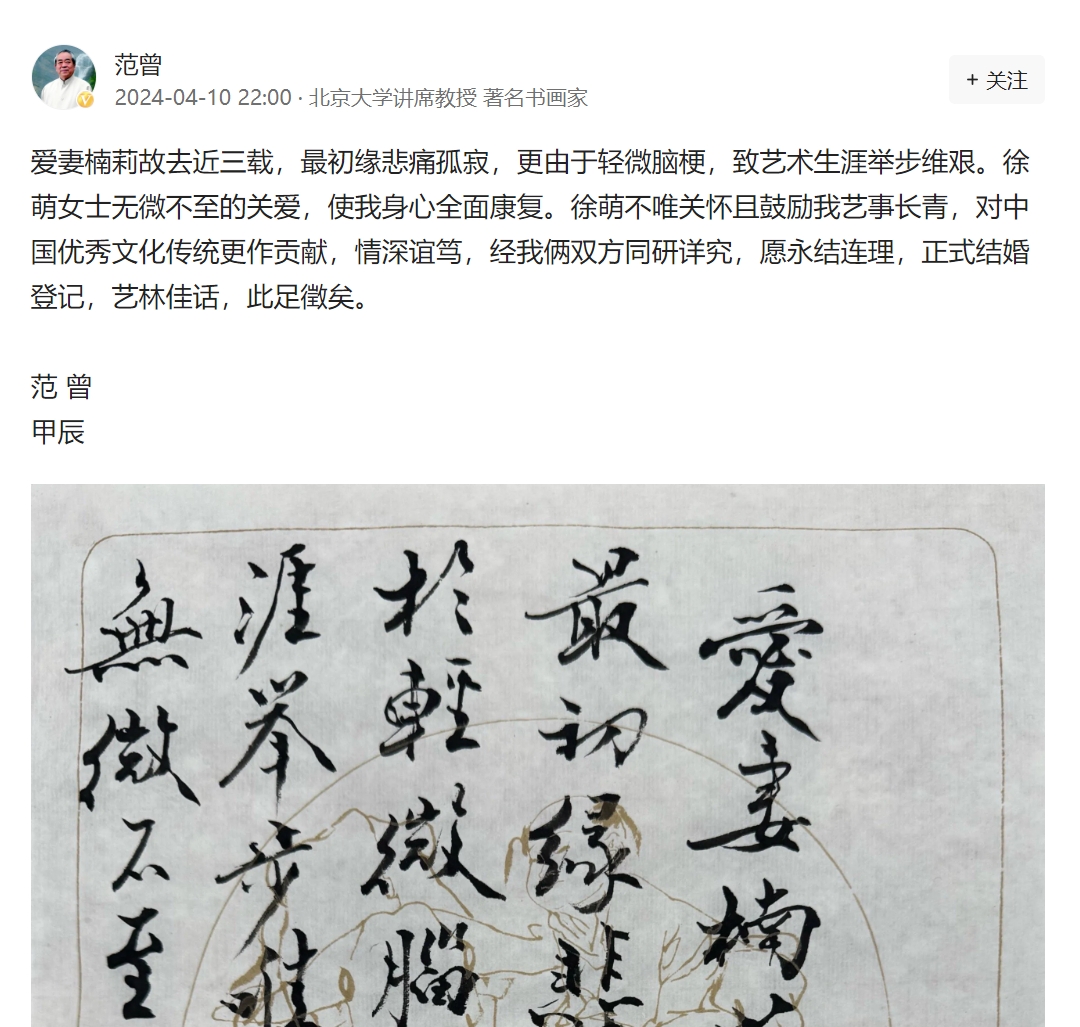 范曾
2024-04-10 22:00 · 北京大学讲席教授 著名书画家
+ 关注
爱妻楠莉故去近三载，最初缘悲痛孤寂，更由于轻微脑梗，致艺术生涯举步维艰。徐
萌女士无微不至的关爱，使我身心全面康复。徐萌不唯关怀且鼓励我艺事长青，对中
国优秀文化传统更作贡献，情深谊笃，经我俩双方同研详究，愿永结连理，正式结婚
登记，艺林佳话，此足徵矣。
范 曾
甲辰
愛妻楠
最初緣悲
於輕微腦
涯举步維
無微不至